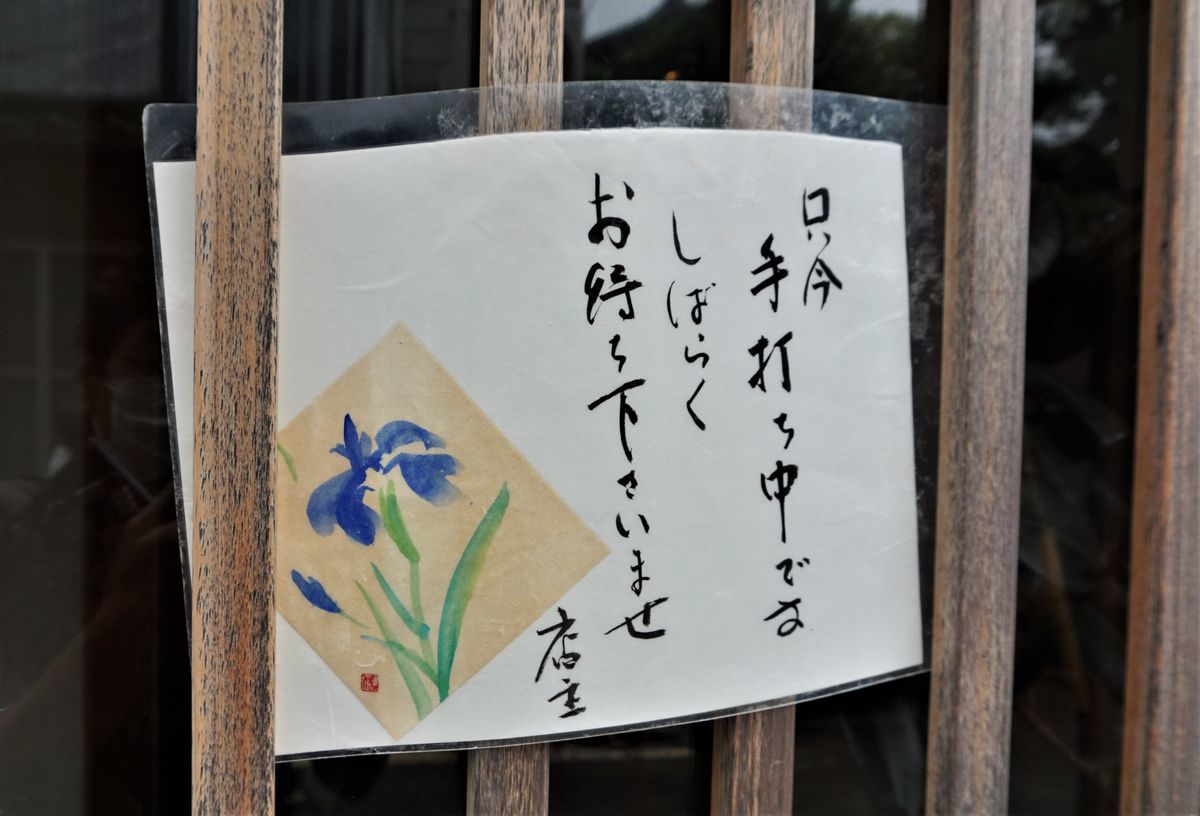 只今
手打ち中です
しばらく
お待ち下さいませ
店主